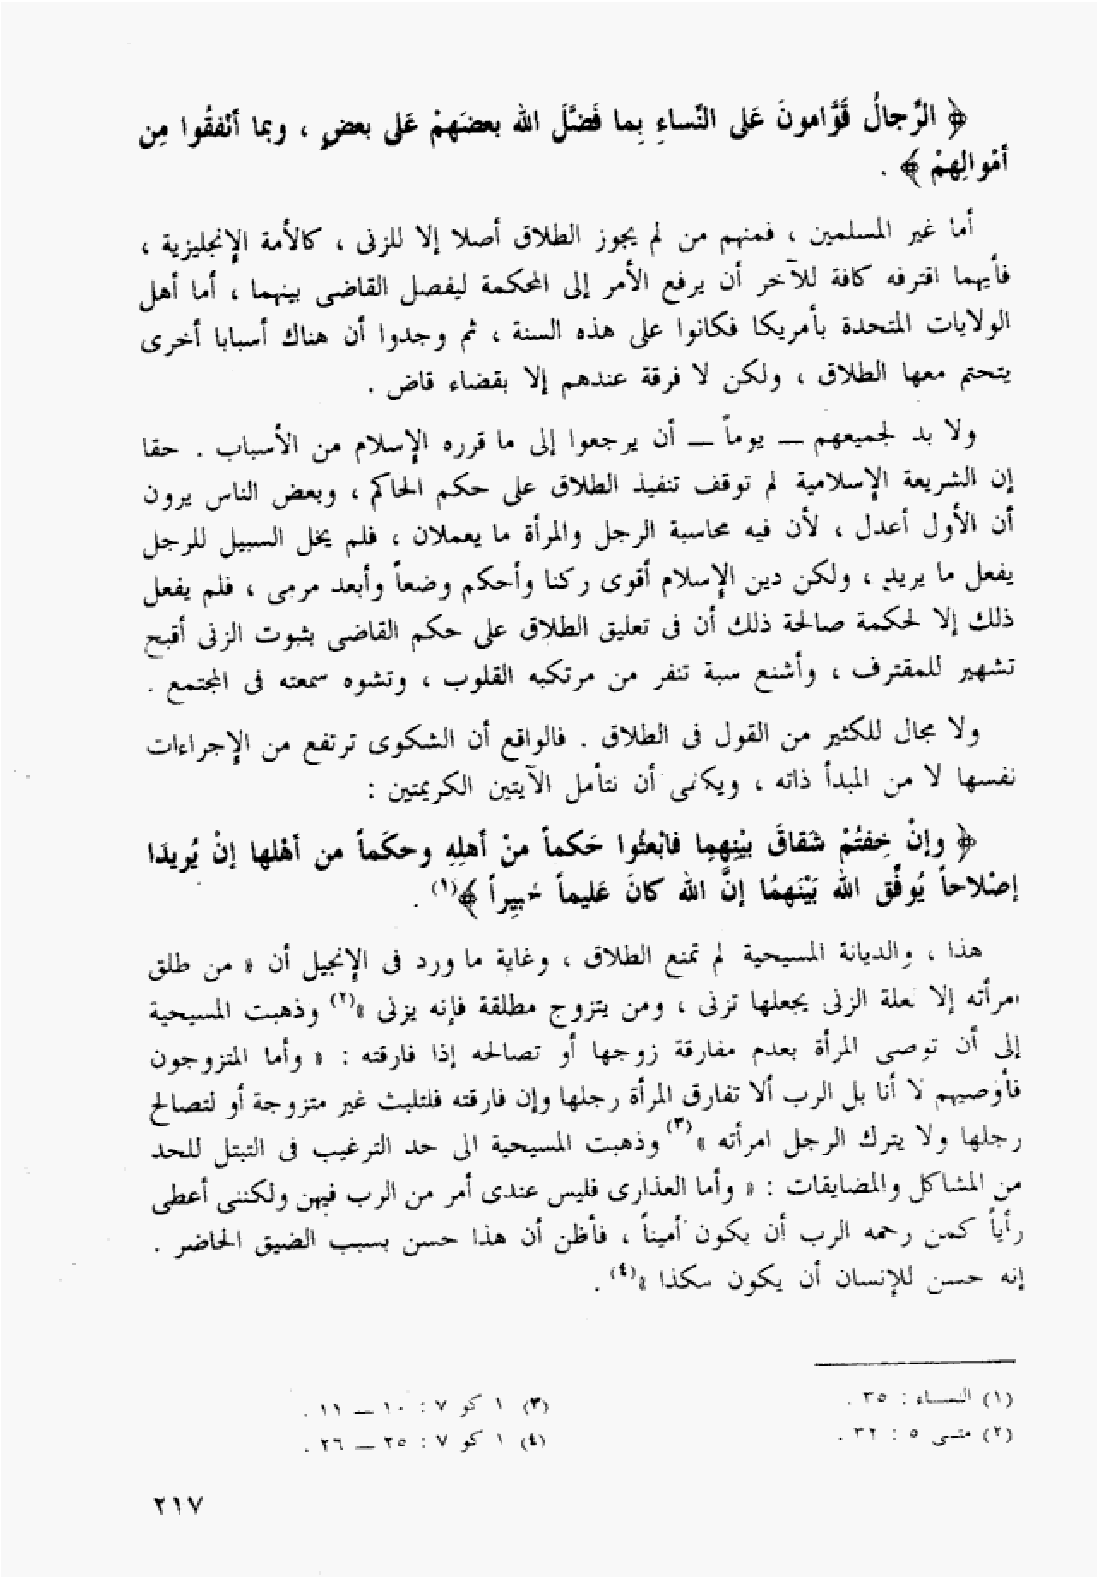 ﴿ الرِّجالُ قَوَّامونَ عَلى النِّساءِ بِما فَضَّلَ الله بعضَهمْ عَلى بعضٍ ، وبما أنْفقُوا مِن
أمْوالِهمْ ﴾ .
أما غير المسلمين ، فمنهم من لم يجوز الطلاق أصلا إلا للزنى ، كالأمة الإنجليزية ،
فأيهما اقترفه كافة للآخر أن يرفع الأمر إلى المحكمة ليفصل القاضى بينهما ، أما أهل
الولايات المتحدة بأمريكا فكانوا على هذه السنة ، ثم وجدوا أن هناك أسبابا أخرى
يتحتم معها الطلاق ، ولكن لا فرقة عندهم إلا بقضاء قاض .
ولا بد لجميعهم — يوماً — أن يرجعوا إلى ما قرره الإسلام من الأسباب . حقا
إن الشريعة الإسلامية لم توقف تنفيذ الطلاق على حكم الحاكم ، وبعض الناس يرون
أن الأول أعدل ، لأن فيه محاسبة الرجل والمرأة ما يعملان ، فلم يخل السبيل للرجل
يفعل ما يريد ، ولكن دين الإسلام أقوى ركنا وأحكم وضعاً وأبعد مرمى ، فلم يفعل
ذلك إلا لحكمة صالحة ذلك أن فى تعليق الطلاق على حكم القاضى بثبوت الزنى أقبح
تشهير للمقترف ، وأشنع سبة تنفر من مرتكبه القلوب ، وتشوه سمعته فى المجتمع .
ولا مجال للكثير من القول فى الطلاق . فالواقع أن الشكوى ترتفع من الإجراءات
نفسها لا من المبدأ ذاته ، ويكفى أن نتأمل الآيتين الكريمتين :
﴿ وإنْ خِفتُمْ شَقاقَ بيْنِهِما فابْعثُوا حَكماً منْ أهلِهِ وحكَماً من أهْلها إنْ يُريدَا
إصْلاحاً يُوفِّق الله بَيْنَهمُا إنَّ الله كانَ عَليماً خَبِيراً ﴾(١) .
هذا ، والديانة المسيحية لم تمنع الطلاق ، وغاية ما ورد فى الإنجيل أن « من طلق
امرأته إلا لعلة الزنى يجعلها تزنى ، ومن يتزوج مطلقة فإنه يزنى »(٢) وذهبت المسيحية
إلى أن توصى المرأة بعدم مفارقة زوجها أو تصالحه إذا فارقته : « وأما المتزوجون
فأوصيهم لا أنا بل الرب ألا تفارق المرأة رجلها وإن فارقته فلتلبث غير متزوجة أو لتصالح
رجلها ولا يترك الرجل امرأته »(٣) وذهبت المسيحية الى حد الترغيب فى التبتل للحد
من المشاكل والمضايقات : « وأما العذارى فليس عندى أمر من الرب فيهن ولكننى أعطى
رأياً كمن رحمه الرب أن يكون أميناً ، فأظن أن هذا حسن بسبب الضيق الحاضر .
إنه حسن للإنسان أن يكون هكذا »(٤) .
(١) النساء : ٣٥ .
(٢) متى ٥ : ٣٢ .
(٣) ١ كو ٧ : ١٠ — ١١ .
(٤) ١ كو ٧ : ٢٥ — ٢٦ .
٢١٧